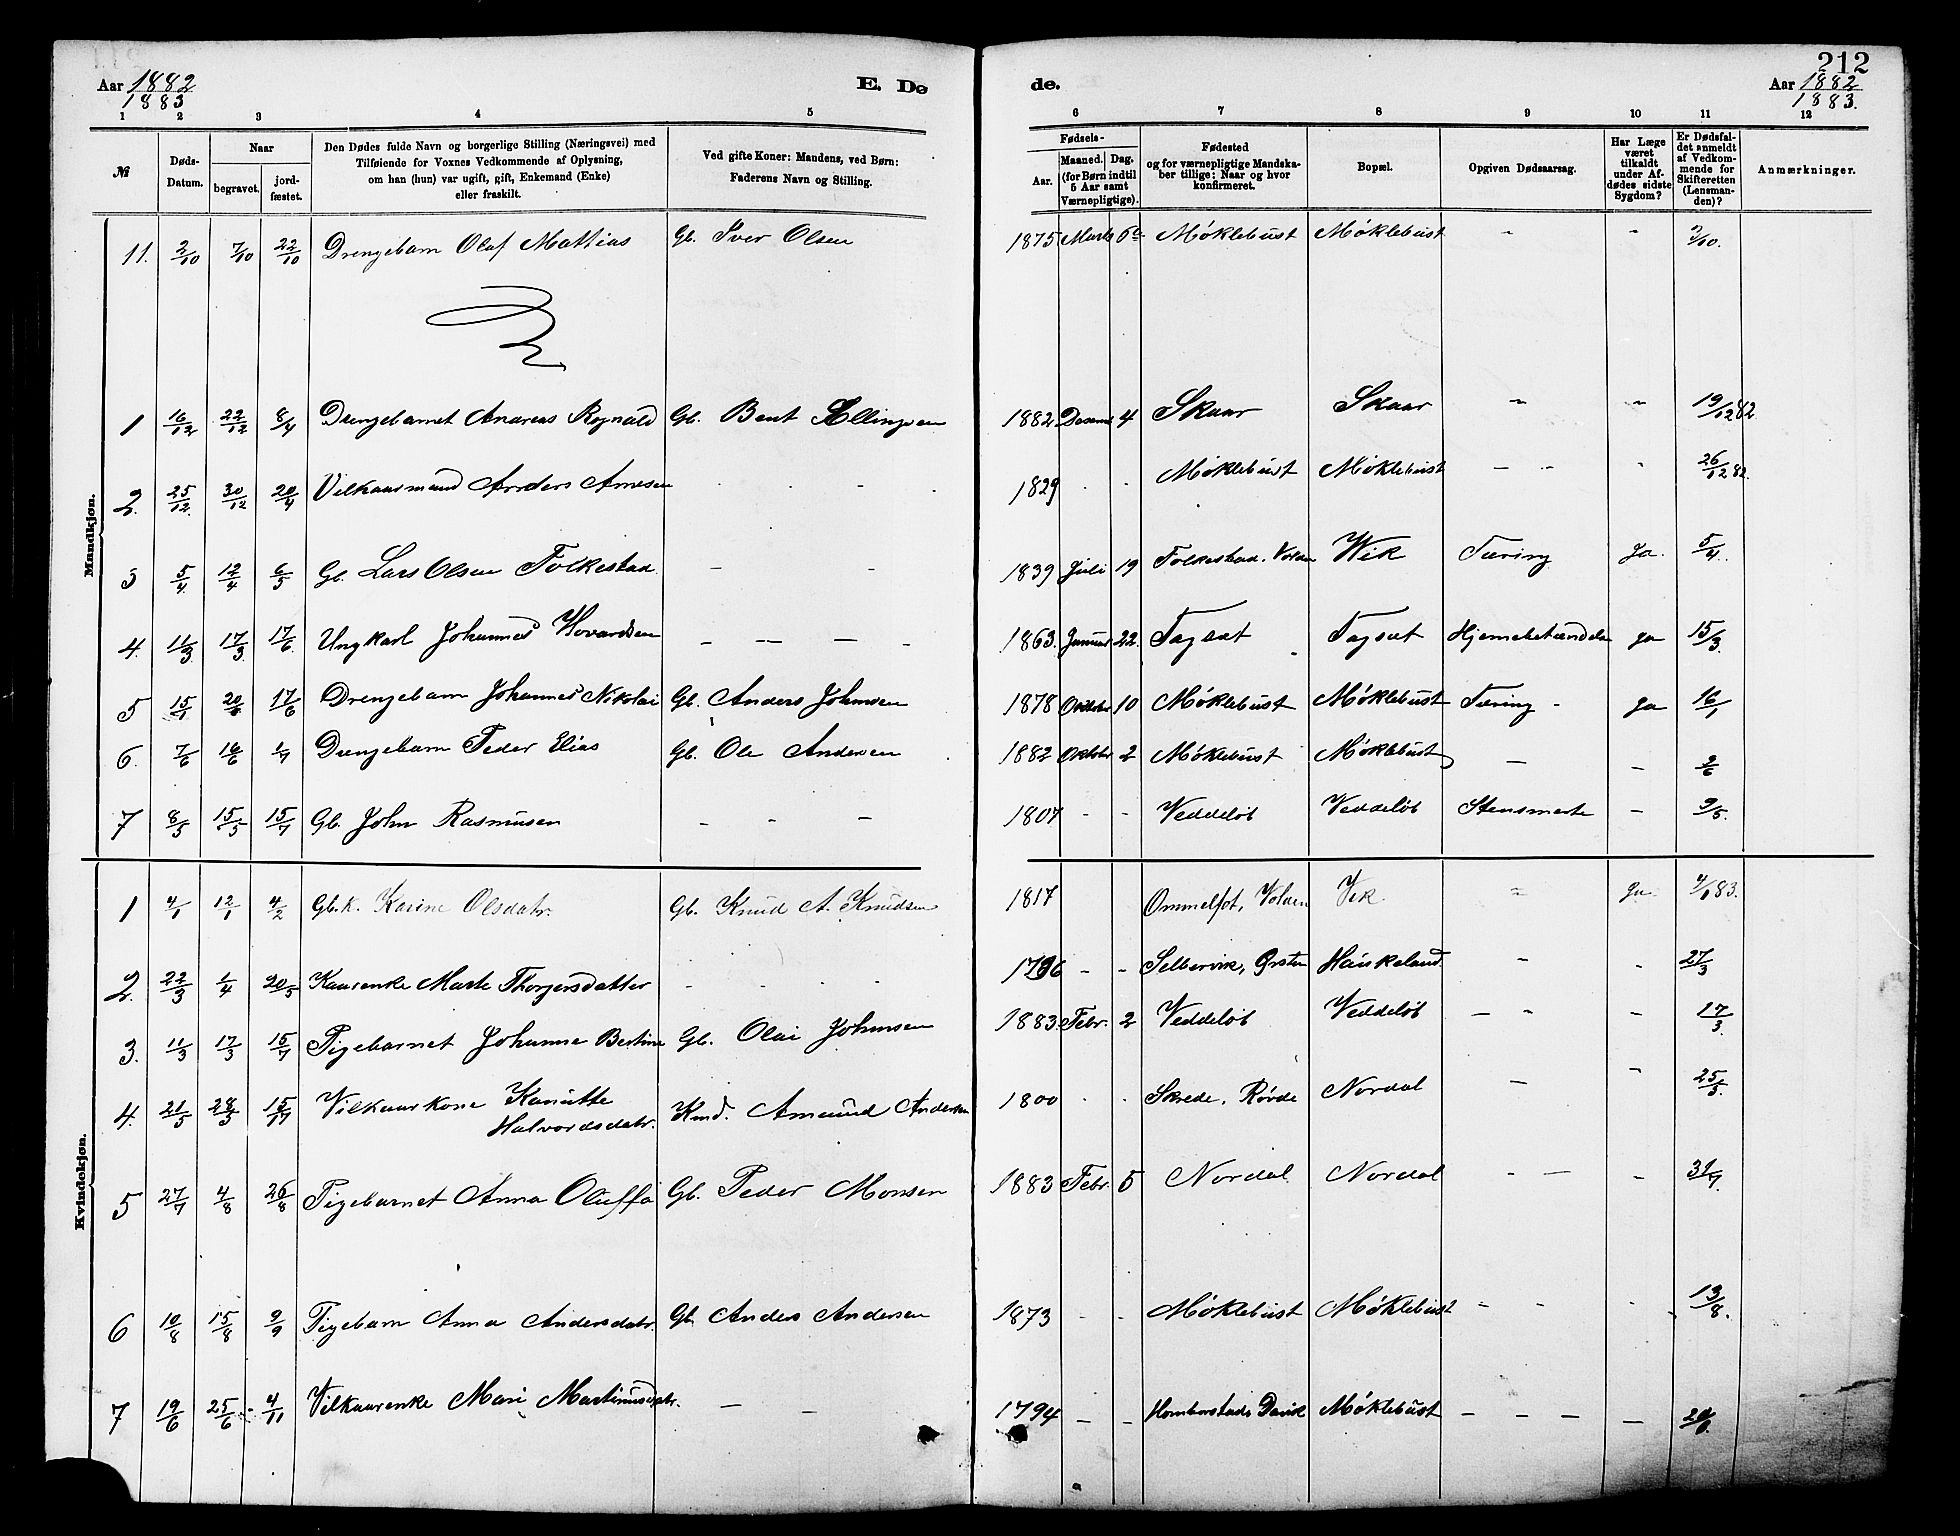 212
Aar 1882
1883
E. Døde.
Aar 1882
1883.
1 2 3 4 5 6 7 8 9 10 11 12
№
Døds-Datum.
Naar
begravet.
jordfæstet.
Den Dødes fulde Navn og borgerlige Stilling (Næringsvei) med
Tilføiende for Voxnes Vedkommende af Oplysning,
om han (hun) var ugift, gift, Enkemand (Enke)
eller fraskilt.
Ved gifte Koner: Mandens, ved Børn:
Faderens Navn og Stilling.
Fødsels-
Aar.
Maaned. Dag.
(for Børn indtil
5 Aar samt
Værnepligtige).
Fødested
og for værnepligtige Mandska-
ber tillige: Naar og hvor
konfirmeret.
Bopæl.
Opgiven Dødsaarsag.
Har Læge
været
tilkaldt
under Af-
dødes sidste
Sygdom?
Er Dødsfal-
det anmeldt
af Vedkom-
mende for
Skifteretten
(Lensman-
den)?
Anmærkninger.
Mandkjøn.
11. 2/10 7/10 22/10 Drengebarn Olaf Mattias Gb. Iver Olsen 1875 Marts Møklebust Møklebust - - 3/10.
1 16/12 22/12 8/4 Drengebarnet Andreas Rognald Gb. Bent Ellingsen 1882 Desemb 4 Skaar Skaar - - 19/12 82
2. 25/12. 30/12 20/4 Vilkaarsmand Anders Arnesen - - 1829 - - Møklebust Møklebust - - - 26/12 82.
3 5/4 12/4 6/5 Gb. Lars Olsen Folkestad - - 1839 Juli 19 Folkestad, Volden Wik Tæring Ja. 5/4.
4. 11/3 17/3 17/6. Ungkarl Johannes Hovardsen - - - - 1863. Januar 22. Tagsæt Tagsæt Hjernebetændelse ja 15/3.
5 15/1 20/1 17/6 Drengebarn Johannes Nikolai Gb. Anders Johnsen 1878 Oktober 10 Møklebust Møklebust Tæring - ja 16/1
6. 7/6 16/6 1/7 Drengebarn Peder Elias Gb. Ole Andersen 1882 Oktober 2 Møklebust Møklebust - - 9/6
7 8/5 15/5 15/7 Gb. John Rasmusen - - - 1807 - - Veddeløb Veddeløb Stensmerte - 9/5.
Kvindekjøn.
1 4/1 12/1 4/2 Gb.k. Karine Olsdatr. Gb. Knud A. Knudsen 1817 Ommelfot, Volden Vik - Ja 4/1 83.
2. 22/3 1/4 20/5 Kaarenke Marte Thorgersdatter - - 1796 - - Selbervik, Ørsten Haukeland - - 27/3
3. 11/3 17/3 15/7 Pigebarnet Johanne Bertine Gb. Olai Johnsen 1883 Febr. 2 Veddeløb Veddeløb - - - 17/3.
4. 21/5 28/5 15/7 Vilkaarkone Kanutte
Halvordsdatr. Kmd. Amund Andersen 1800 - - Skrede, Røvde Nordal - - 25/5.
5 27/7 4/8 26/8 Pigebarnet Anna Oluffa Gb. Peder Monsen 1883 Febr. 5 Nordal Nordal - - - 31/7.
6 10/8 15/8 9/9 Pigebarn Anna Andersdatr. Gb. Anders Andersen 1873 - - Møklebust Møklebust - - - 13/8.
7 19/6 25/6 4/11 Vilkaarenke Mari Martinusdatr. - - 1794 - - Davik Møklebust - - - - 20/6.